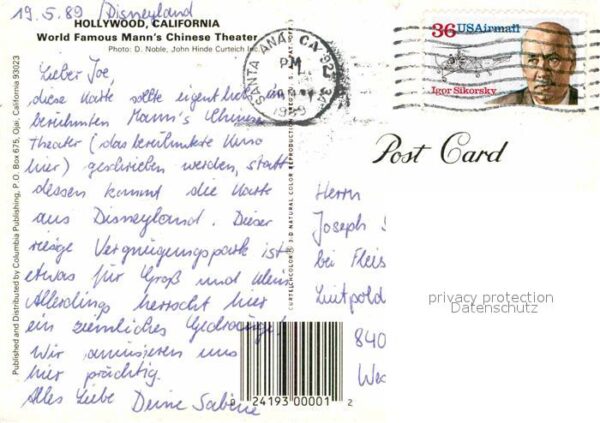 19.5.89 / Disneyland
HOLLYWOOD, CALIFORNIA
World Famous Mann's Chinese Theater
Photo: D. Noble, John Hinde Curteich Inc.
Lieber Joe,
diese Karte sollte eigentlich im
berühmten Mann's Chinese
Theater (das berühmteste Kino
hier) geschrieben werden, statt
dessen kommt die Karte
aus Disneyland. Dieser
riesige Vergnügungspark ist
etwas für Groß und Klein
Allerdings herrscht hier
ein ziemliches Gedränge.
Wir amüsieren uns
hier prächtig.
Alles Liebe Deine Sabine
Published and Distributed by Columbia Publishing, P.O. Box 675, Ojai, California 93023
CURTEICHCOLOR ® 3-D NATURAL COLOR REPRODUCTION
SANTA ANA, CA
PM
1989
36 USAirmail
Igor Sikorsky
Post Card
Herrn
Joseph
bei Fleis
Luitpold
840
We
privacy protection
Datenschutz
0 24193 00001 2